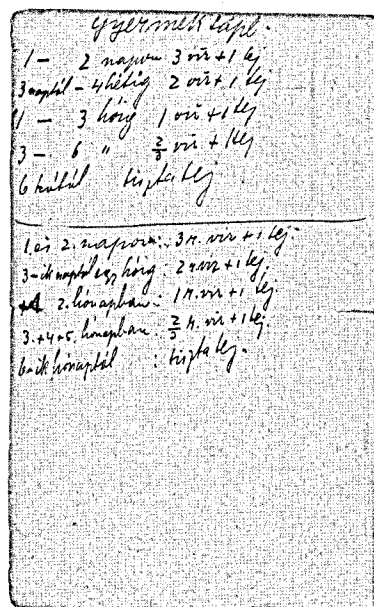 gyermek tápl.
1 – 2 napon 3 víz + 1 tej
3 naptól – 4 hétig 2 víz + 1 tej
1 – 3 hóig 1 víz + 1 tej
3 – 6 " 2/3 víz + 1 tej
6 hótól tiszta tej
1. és 2. napon: 3 r. víz + 1 tej.
3-ik naptól egy hóig: 2 r víz + 1 tej.
2. hónapban: 1 r. víz + 1 tej
3. + 4 + 5. hónapban: 2/3 r. víz + 1 tej.
6-ik hónaptól : tiszta tej.